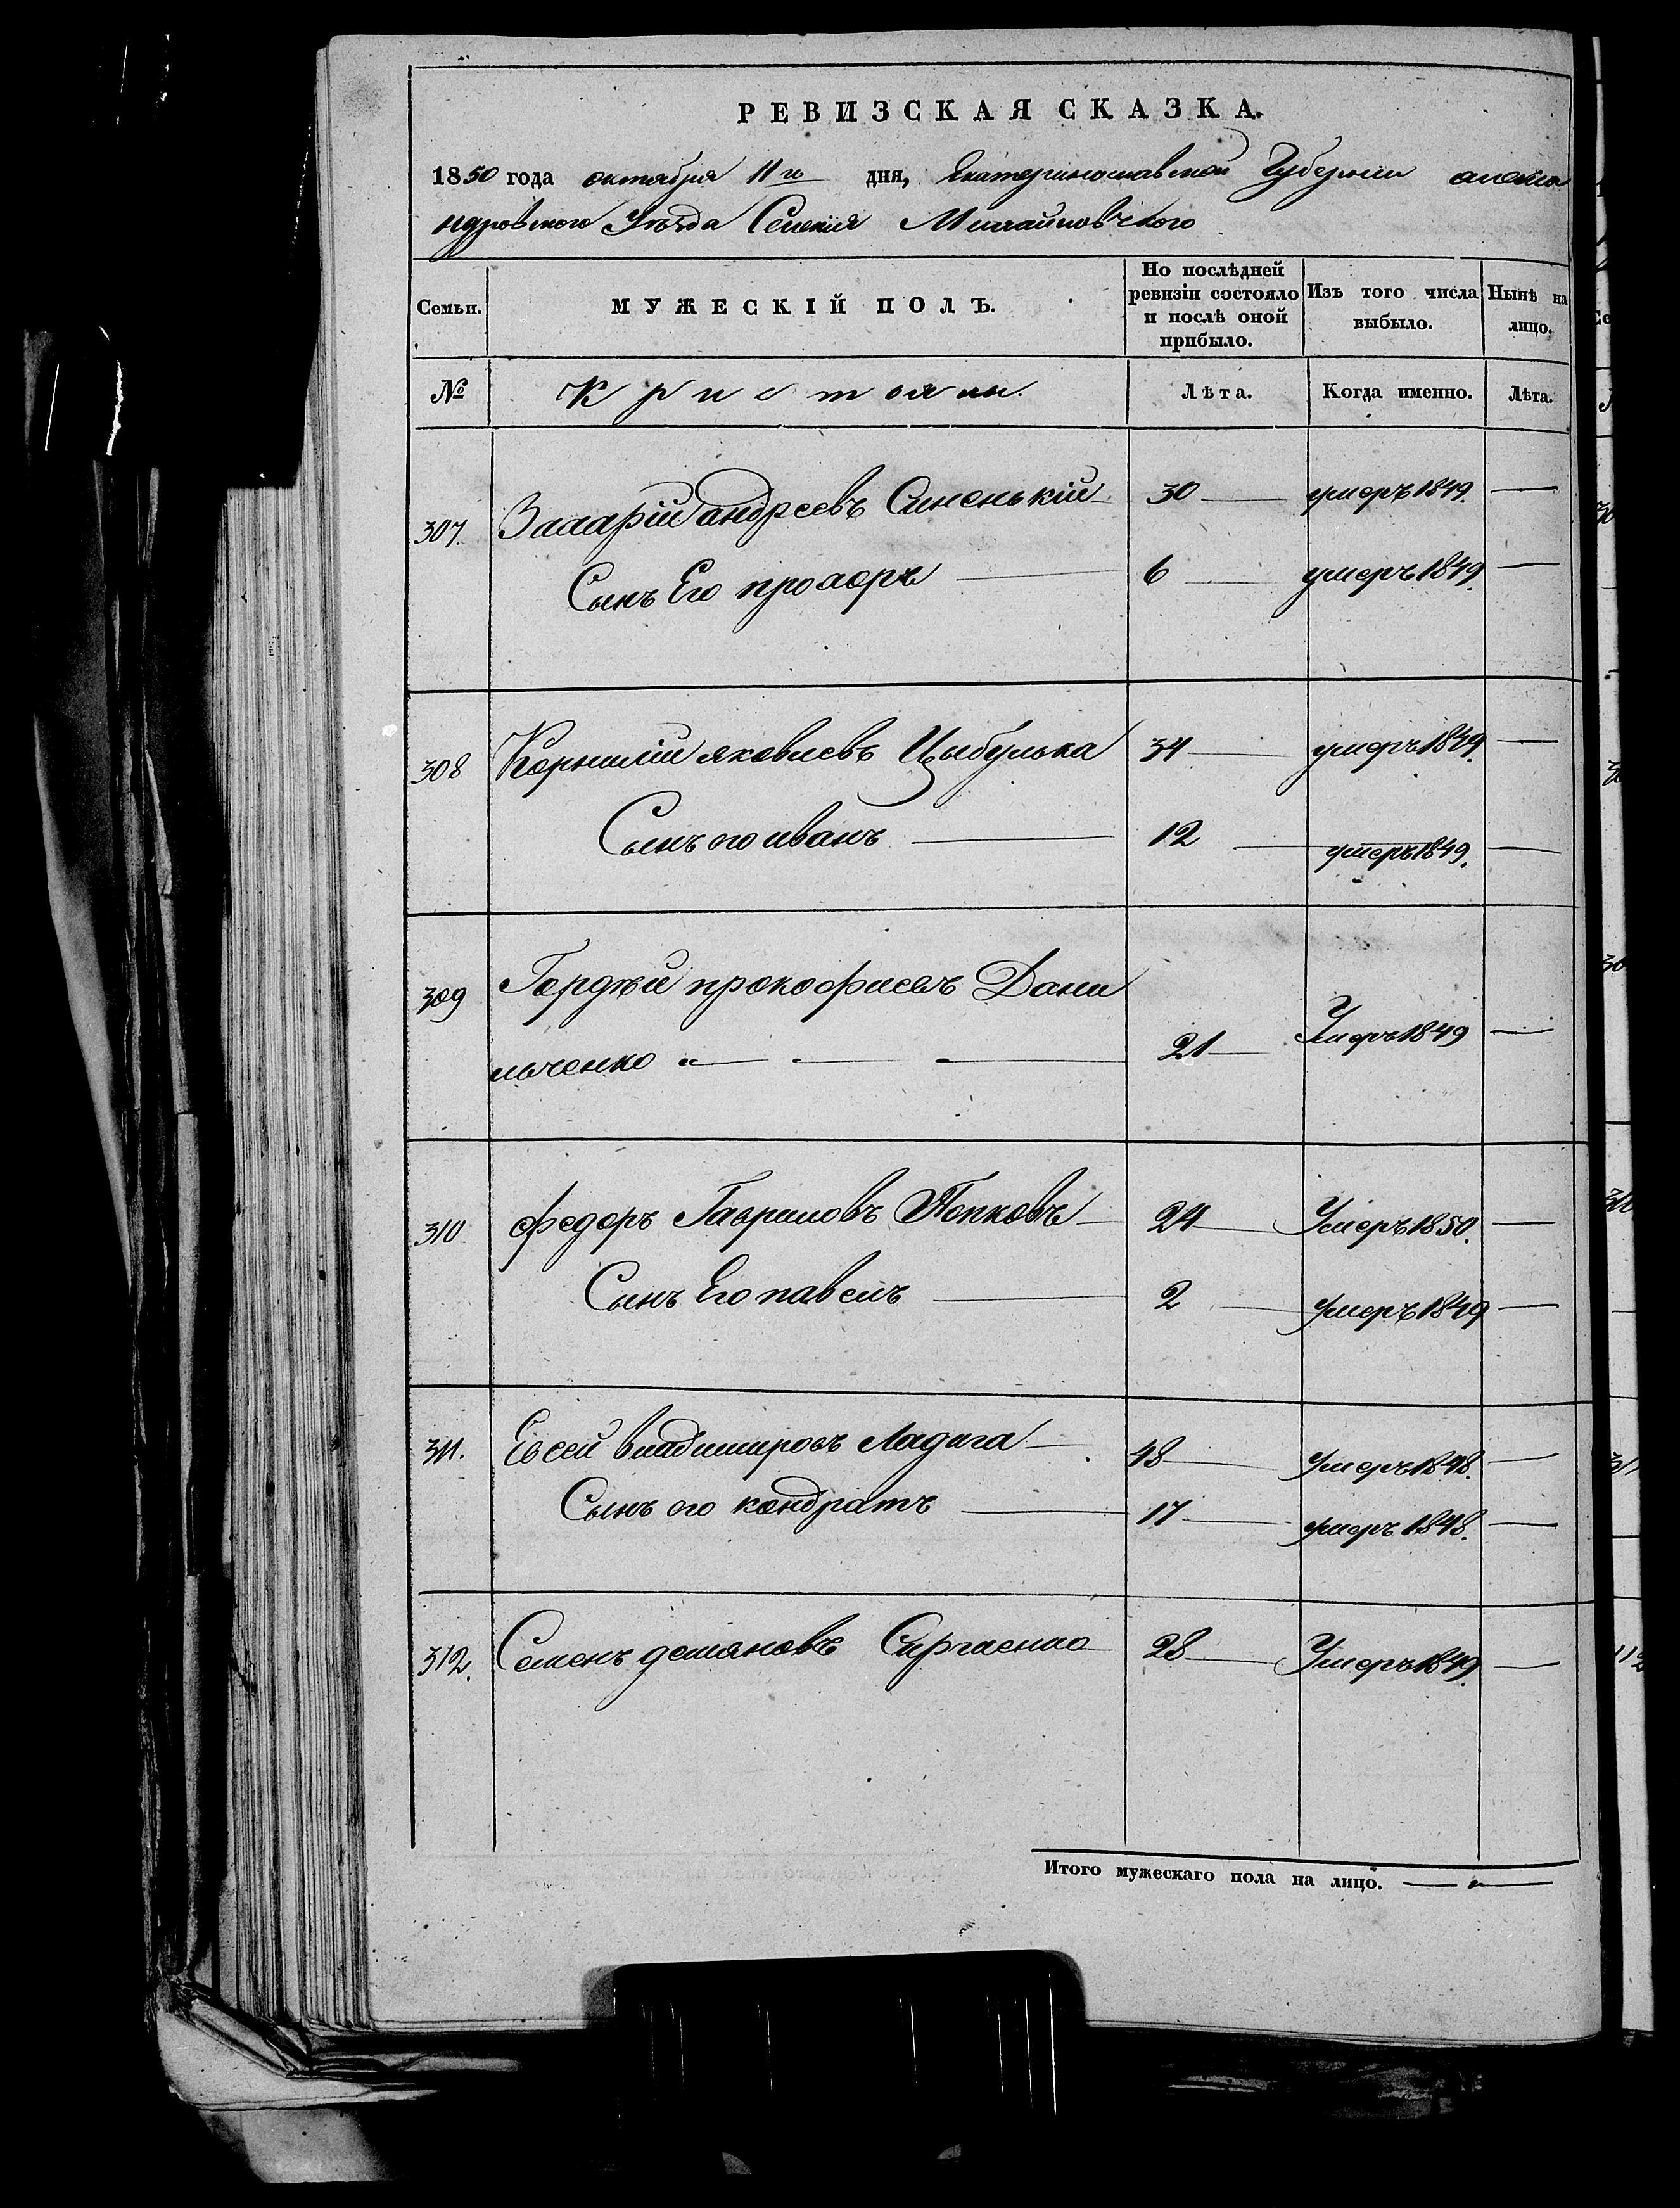 РЕВИЗСКАЯ СКАЗКА.
1850 года октября 11го дня, Екатеринославской Губернии алекса
ндровского Уѣзда Селения Михайловского
Семьи. МУЖЕСКІЙ ПОЛЪ. По послѣдней ревизіи состояло и послѣ оной прибыло. Изъ того числа выбыло. Нынѣ на лицо.
№ Кристояны. Лѣта. Когда именно. Лѣта.
307. Захарій андреевъ Синенькій 30 — умеръ 1849. —
Сынъ Его прохоръ — 6 — умеръ 1849. —
308 Корнилій яковлевъ Цыбулька 34 — умеръ 1849. —
Сынъ его иванъ — 12 — умеръ 1849. —
309 Гордѣй прокофиевъ Дани
льченко — 21 — Умеръ 1849 —
310. федоръ Гавриловъ Попковъ — 24 — Умеръ 1850. —
Сынъ Его павелъ — 2 — умеръ 1849 —
311. Евсей владимировъ Ладига — 48 — Умеръ 1848. —
Сынъ его кондратъ — 17 — умеръ 1848. —
312. Семенъ демяновъ 28 — Умеръ 1849. —
Итого мужескаго пола на лицо. — „ —